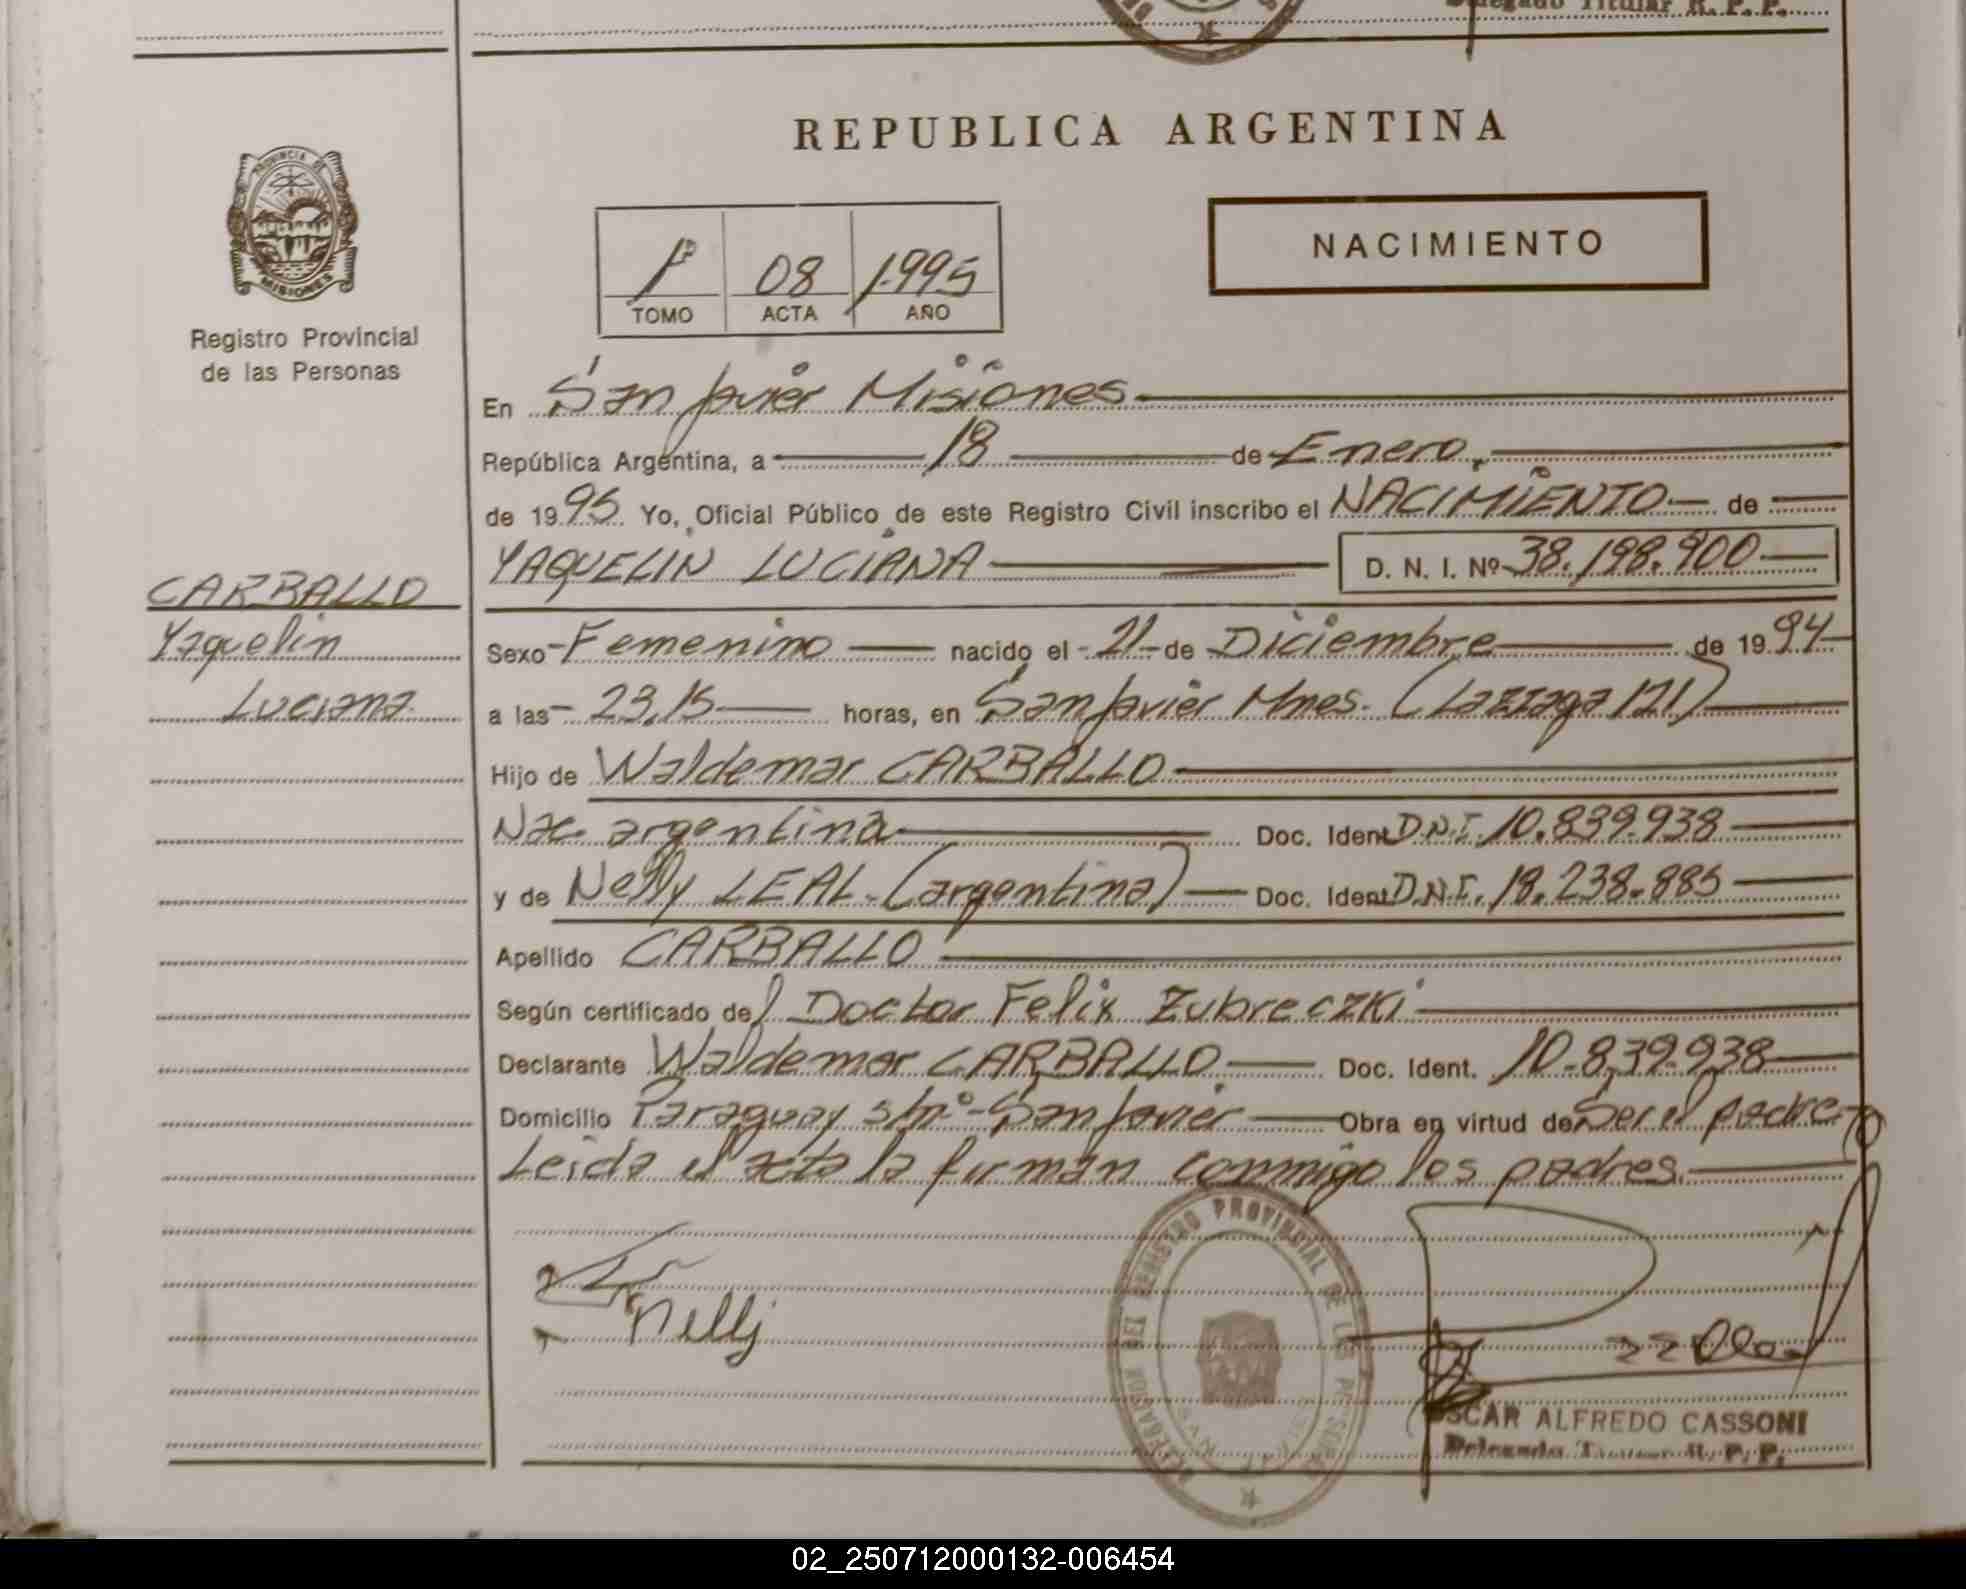 Delegado Titular R. P. P.
REPUBLICA ARGENTINA
PROVINCIA DE
MISIONES
Registro Provincial
de las Personas
NACIMIENTO
1º 08 1.995
TOMO ACTA AÑO
En San Javier Misiones
República Argentina, a 18 de Enero.
de 1995 Yo, Oficial Público de este Registro Civil inscribo el NACIMIENTO de
YAQUELIN LUCIANA D. N. I. Nº 38.198.900
CARBALLO
Yaquelin
Luciana
Sexo Femenino nacido el 21 de Diciembre de 1994
a las 23,15 horas, en San Javier Mnes. (Lazzaga 121)
Hijo de Waldemar CARBALLO
Nac. argentina Doc. Ident D.N.I. 10.839.938
y de Nelly LEAL (argentina) Doc. Ident D.N.I. 18.238.885
Apellido CARBALLO
Según certificado del Doctor Felix Zubreczki
Declarante Waldemar CARBALLO. Doc. Ident. 10.839.938
Domicilio Paraguay s/nº San Javier Obra en virtud de Ser el padre
Leida el acta la firman conmigo los padres.
Nellj
REGISTRO PROVINCIAL DE LAS PERSONAS
OSCAR ALFREDO CASSONI
Delegado Titular R. P. P.
02_250712000132-006454